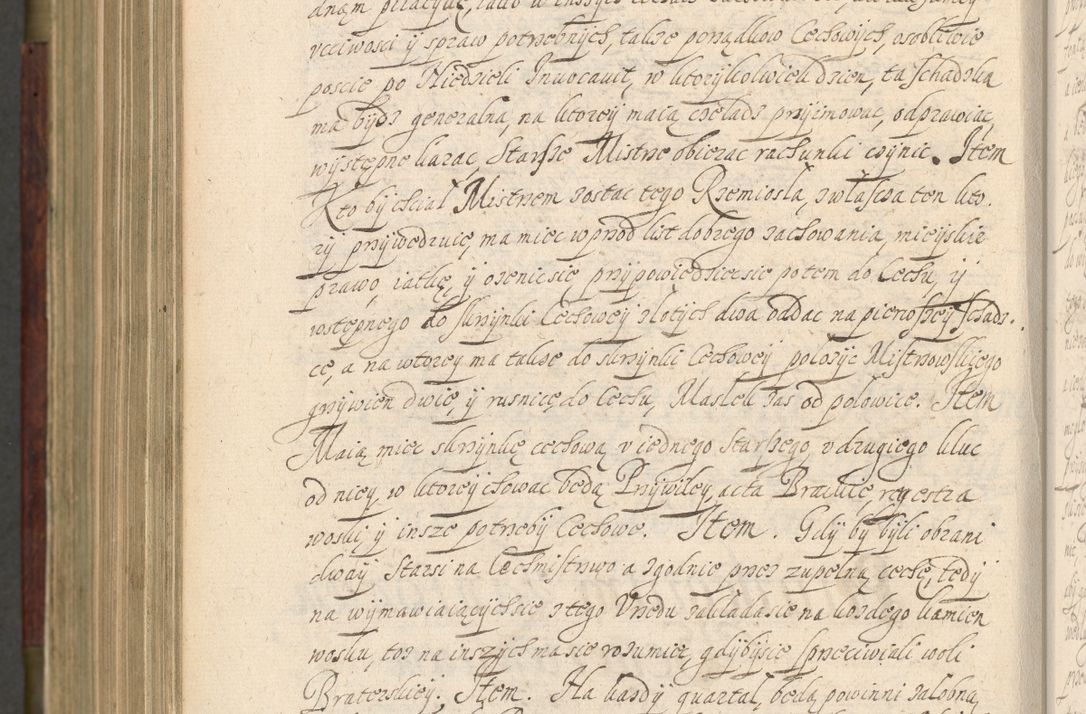 vcciwosci ÿ spraw potrzebnÿch, takze porządkow Cechowÿch, osobliwie
poscie po Niedzieli Invocavit, w ktorÿkolwiek dzien, ta schadzka
ma bÿdz generalna, na ktoreÿ maią czeladz przÿimowac, odprawiac,
wÿstępne kazac, Starsze Mistrze obierac rachunki czÿnic. Item
Kto bÿ chciał Mistrzem zostac tego Rzemiosła, zwłascza ten kto.
rÿ przÿwędruie, ma miec wprzod list dobrego zachowania, mieÿskie
prawo, iatkę, ÿ ozenic sie przÿpowiedziec sie potem do Cechu, ÿ
wstępnego do skrzÿnki Cechoweÿ złotÿch dwa oddac na pierwszeÿ schadz.
ce, a na wtoreÿ ma takze do skrzÿnki Cechoweÿ połozÿc Mistrzowskiego
grzÿwien dwie, ÿ rusnicę do Cechu, Maslek zas od połowice. Item
Maią miec skrzÿnkę cechową v iednego Starszego, v drugiego kluc
od nieÿ, w ktoreÿ chowac będą Przÿwileÿ, acta Brackie, regestra
woski, ÿ insze potrzebÿ Cechowe. Item. Gdÿ bÿ bÿli obrani
dwaÿ Starsi na Cechmistrzwo a zgodnie przez zupełną cechę, tedÿ
na wÿmawiaiącÿch sie z tego Vrzedu zakładasie na kozdego kamien
wosku, toz na inszÿch ma sie rozumiec, gdÿbÿ sie sprzeciwiali woli
Braterskieÿ. Item. Na kazdÿ quartał, będą powinni załobną